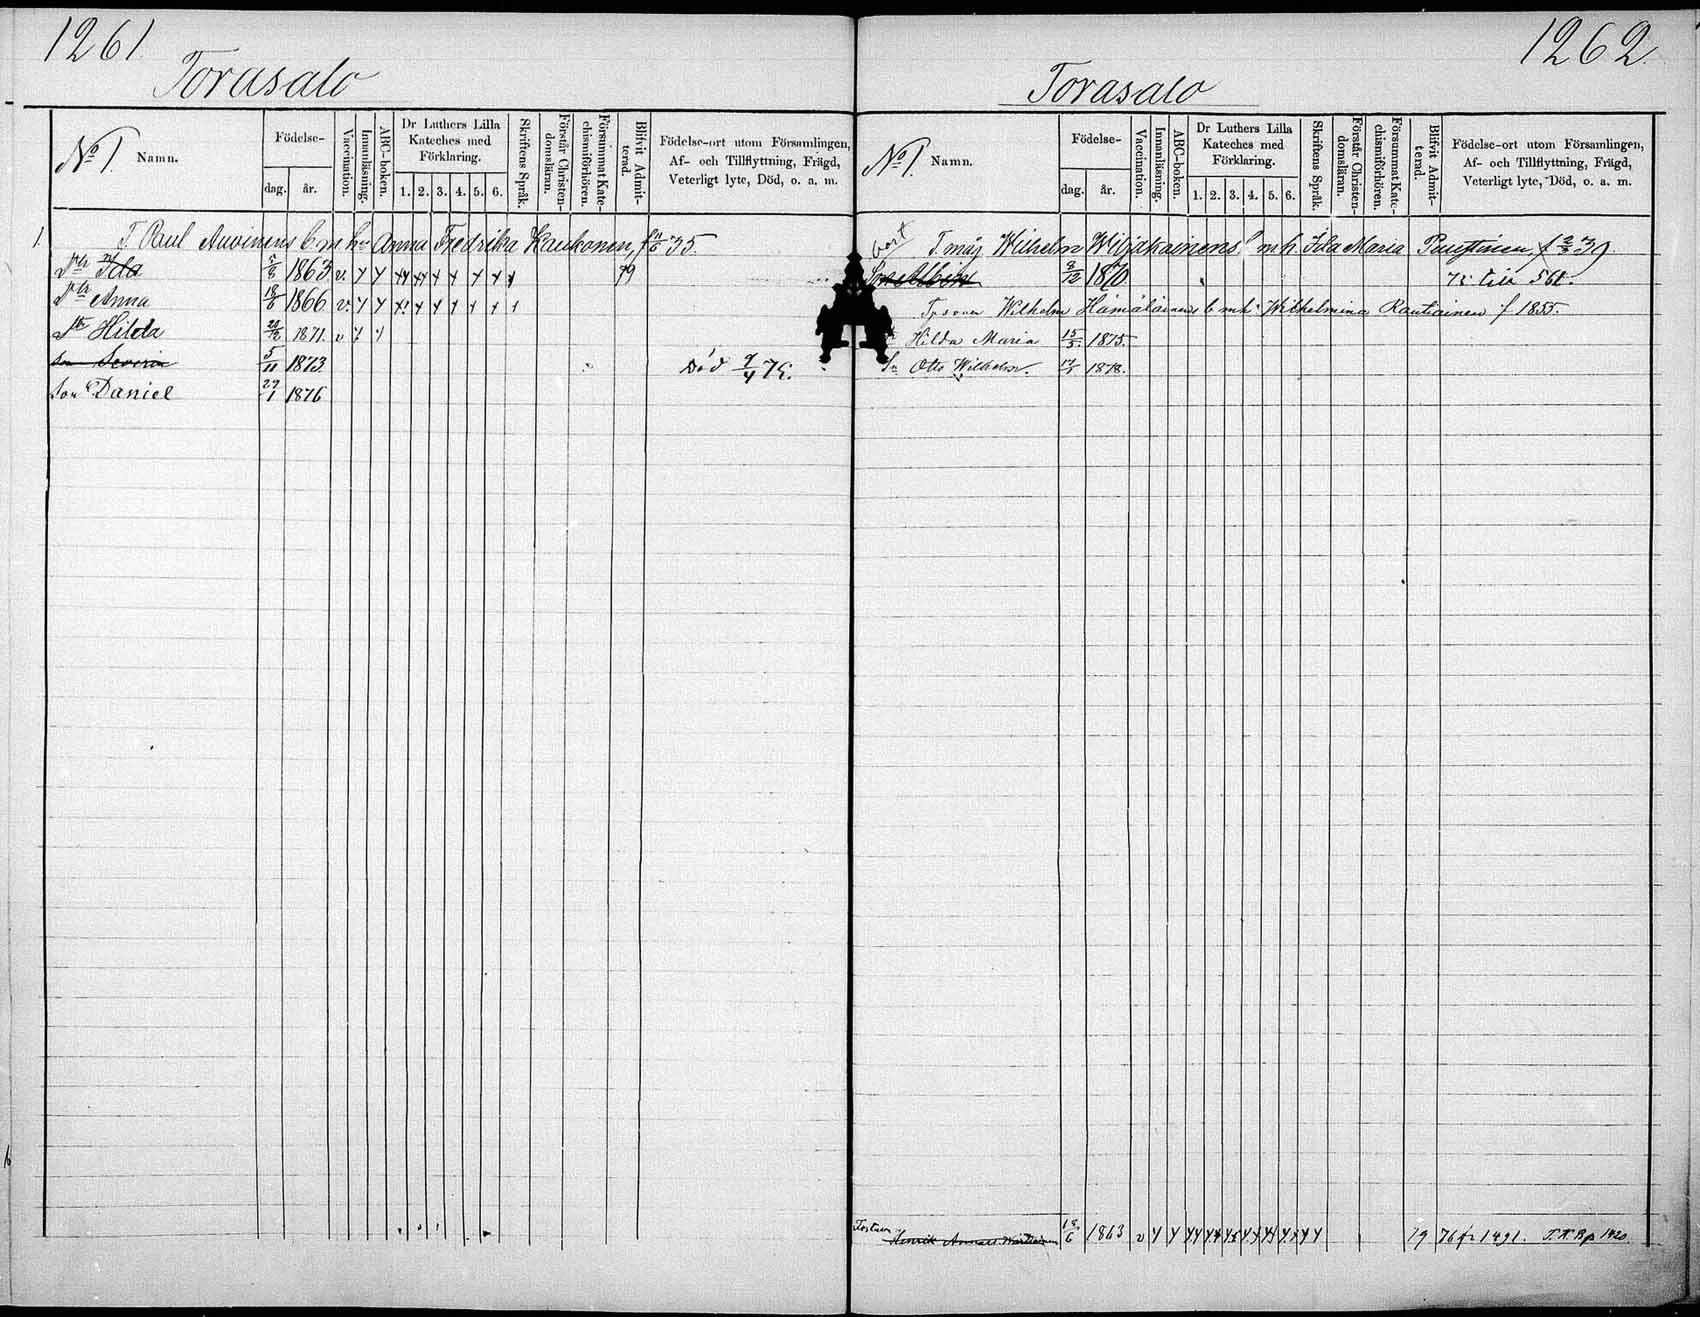 1261.
Torasalo
No 1. Namn.
Födelse-
dag. år.
Vaccination.
Innanläsning.
ABC-boken.
Dr Luthers Lilla
Kateches med
Förklaring.
1. 2. 3. 4. 5. 6.
Skriftens Språk.
Förstår Christen-
domsläran.
Försummat Kate-
chismiförhören.
Blifvit Admit-
terad.
Födelse-ort utom Församlingen,
Af- och Tillflyttning, Frägd,
Veterligt lyte, Död, o. a. m.
1. T. Paul Auvinens b m h Anna Fredrika Haukonen, f 35.
Dtr Ida 1863 v. 79
Dtr Anna 18/6 1866 v.
Dtr Hilda 1871. v
Son Severin 5/11 1873 Död 9/4 75.
Son Daniel 29/1 1876
1262.
Torasalo
No 1. Namn.
Födelse-
dag. år.
Vaccination.
Innanläsning.
ABC-boken.
Dr Luthers Lilla
Kateches med
Förklaring.
1. 2. 3. 4. 5. 6.
Skriftens Språk.
Förstår Christen-
domsläran.
Försummat Kate-
chismiförhören.
Blifvit Admit-
terad.
Födelse-ort utom Församlingen,
Af- och Tillflyttning, Frägd,
Veterligt lyte, Död, o. a. m.
bort T. måg Wilhelm Wiljakainens m. h. Ida Maria f 2/3 39
Son Albin 9/12 1870 75 till 561.
Wilhelm Hämäläinens b mh Wilhelmina Rautiainen f 1855.
Hilda Maria 15/3. 1875.
Sn Otto Wilhelm. 1878.
Henrik 18/6 1863 v 19 76 fr 1491. 1420.